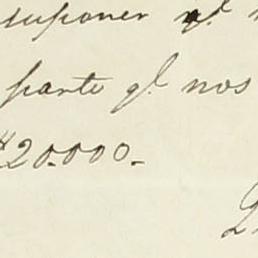 suponer ql
parte ql. nos
$20.000.-